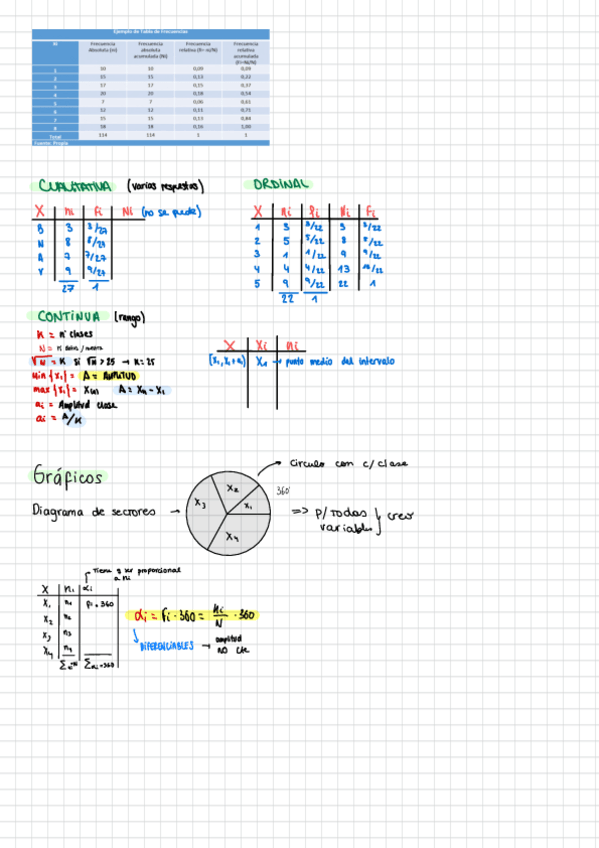 Ejemplo de Tabla de Frecuencias
Xi Frecuencia absoluta (ni) Frecuencia absoluta acumulada (Ni) Frecuencia relativa (fi= ni/N) Frecuencia relativa acumulada (Fi=Ni/N)
1 10 10 0,09 0,09
2 15 15 0,13 0,22
3 17 17 0,15 0,37
4 20 20 0,18 0,54
5 7 7 0,06 0,61
6 12 12 0,11 0,71
7 15 15 0,13 0,84
8 18 18 0,16 1,00
Total 114 114 1 1
Fuente: Propia
CUALITATIVA (varias respuestas)
X ni fi Ni (no se puede)
B 3 3/27
N 8 8/27
A 7 7/27
V 9 9/27
27 1
ORDINAL
X ni fi Ni Fi
1 3 3/22 3 3/22
2 5 5/22 8 8/22
3 1 1/22 9 9/22
4 4 4/22 13 13/22
5 9 9/22 22 1
22 1
CONTINUA (rango)
K = nº clases
N =
√N = K si √N > 25 → K = 25
min {xi} = A = AMPLITUD
max {xi} = X(n) A = Xn - X1
ai = Amplitud clase
ai = A/K
X Xi ni
X1 → punto medio del intervalo
Gráficos
Diagrama de sectores →
X1
X2
X3
X4
Circulo con c/clase
360
=> p/todas variables } creo
Tiene q ser proporcional a ni
X ni αi
X1 n1 fi · 360
X2 n2
X3 n3
X4 n4
αi = fi · 360 = ni/N · 360
DIFERENCIABLES → amplitud no cte